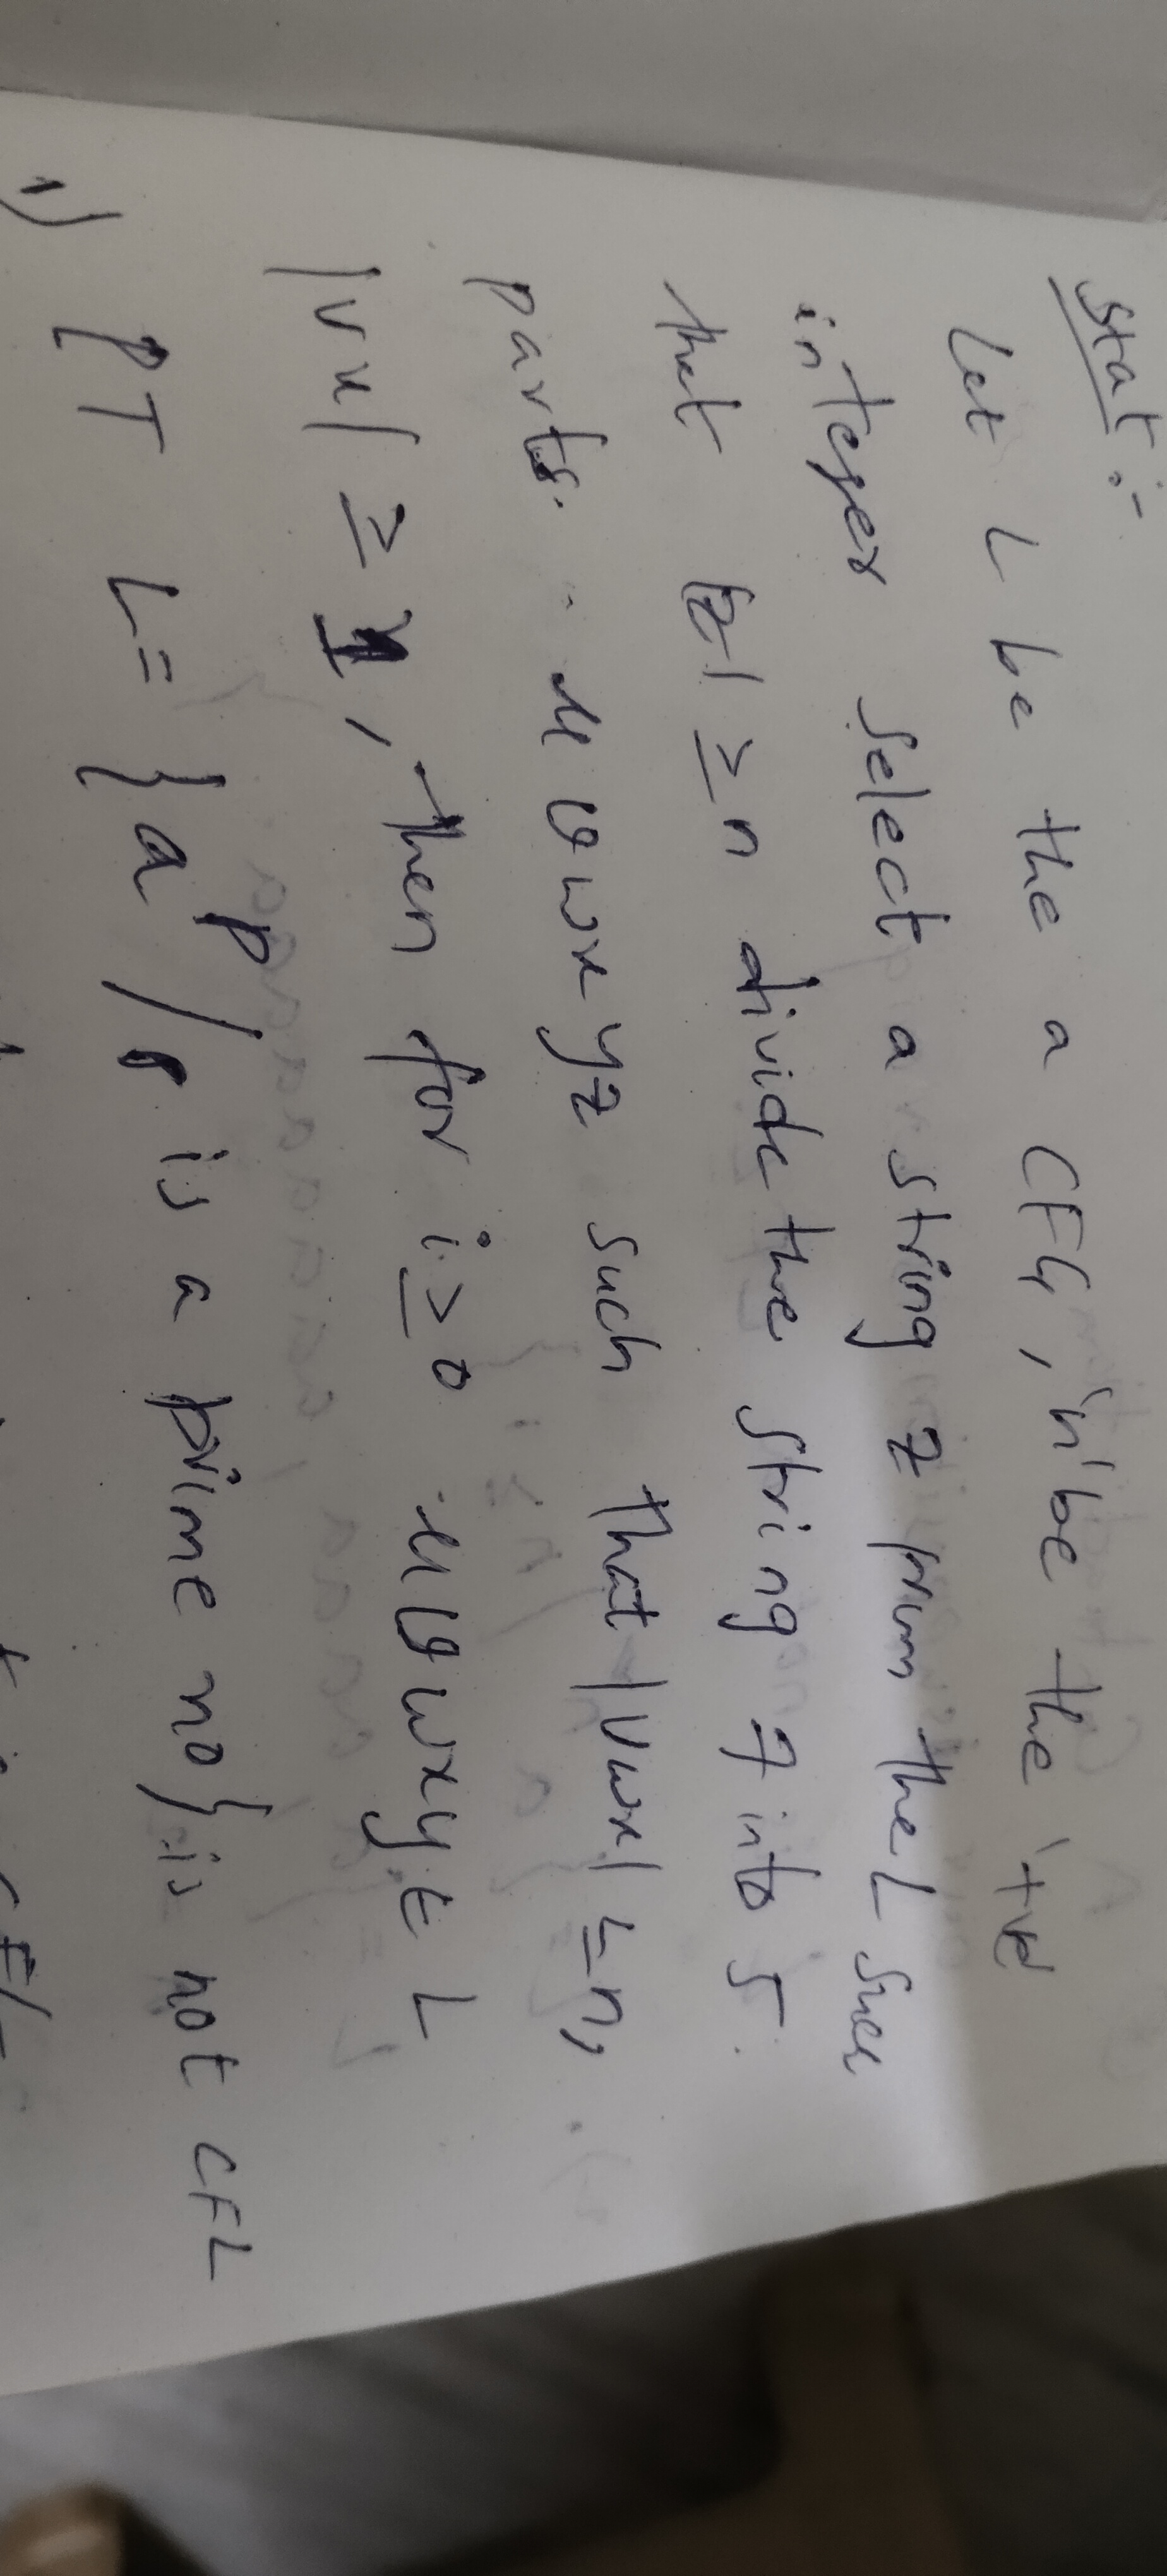 Stat :-
Let L be the a CFG, 'n' be the '+ve
integer select a string z from the L such
that |z| ≥ n divide the string z into 5
parts. u v w x y z such that |vwx| ≤ n,
|vx| ≥ 1, then for i ≥ 0 u v w x y ∈ L
1) PT L = { a^p / p is a prime no} is not CFL